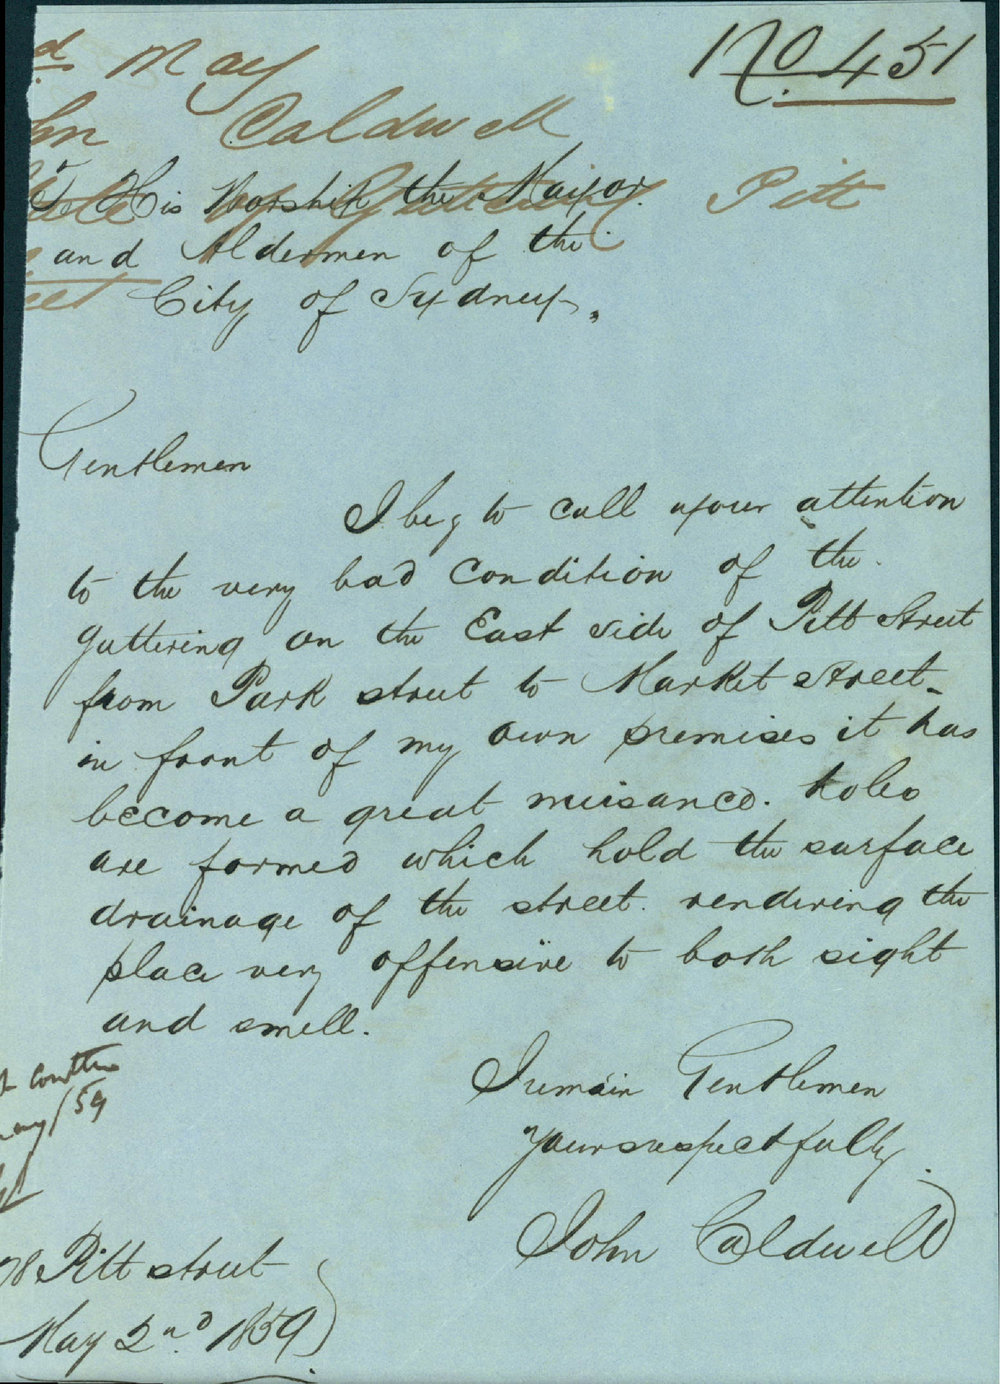 No. 451
d. May
hn Caldwell
Guttering Pitt
eet
To His Worship the Mayor
and Aldermen of the
City of Sydney,
Gentlemen
I beg to call your attention
to the very bad Condition of the
guttering on the East side of Pitt Street
from Park street to Market Street_
in front of my own premises it has
become a great nuisance. holes
are formed which hold the surface
drainage of the street. rendering the
place very offensive to both sight
and smell.
I remain Gentlemen
Yours respectfully.
John Caldwell
Comttee
may/59
78 Pitt street
May 2nd. 1859.